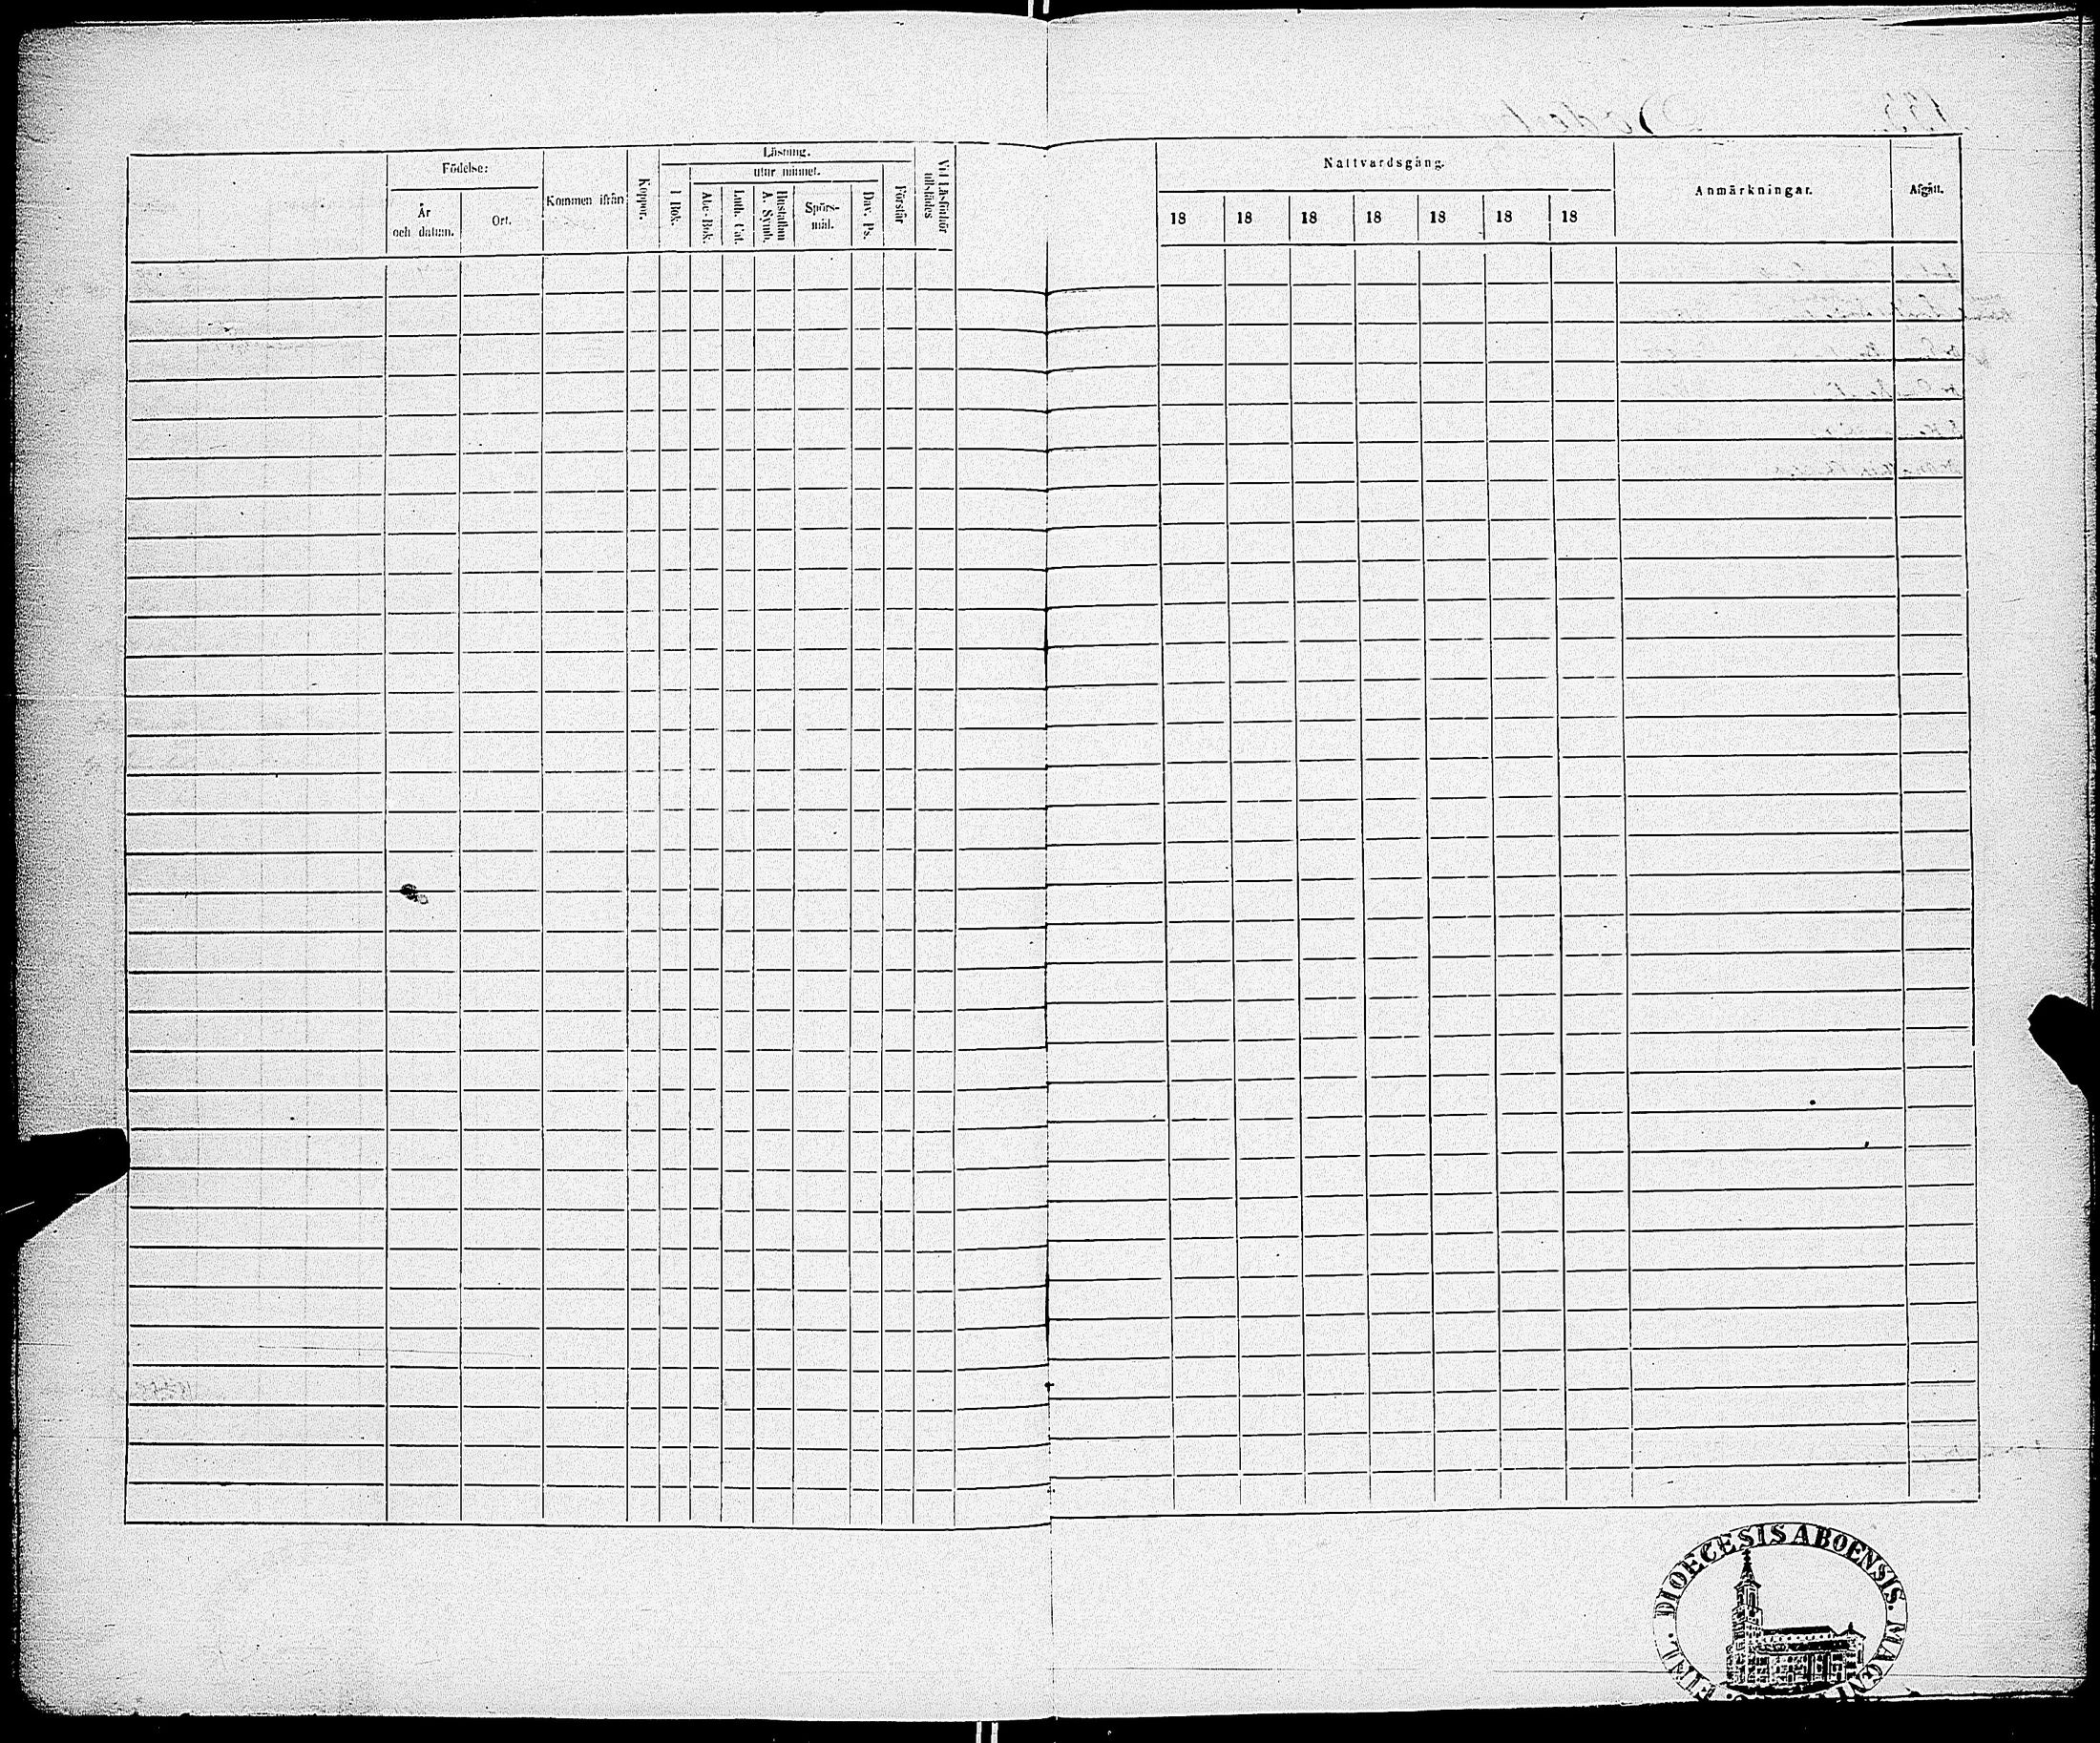 Födelse:
År
och datum.
Ort.
Kommen ifrån
Koppor.
Läsning.
I Bok.
utur minnet.
Abc-Bok.
Luth. Cat.
Hustaflan
A. Symb.
Spörs-
mål.
Dav. Ps.
Förstår
Vid Läsförhör
tillstädes
Nattvardsgång.
18 18 18 18 18 18 18
Anmärkningar.
Afgått.
DIOECESIS ABOENSIS. MAGNI